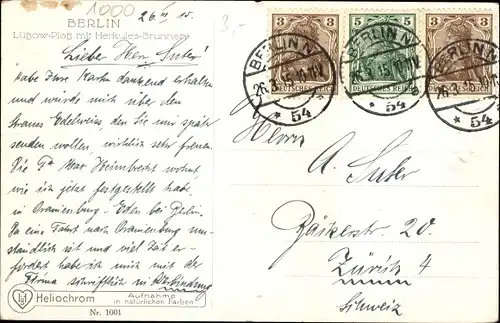 1000
BERLIN
Lützow-Platz mit Herkules-Brunnen
26. III 15.
3,-
Lieber Herr Suter!
habe Ihre Karte dankend erhalten
und würde mich über den
Strauss Edelweiss, den Sie mir spät
senden wollen, wirklich sehr freuen.
Die Fa Max Heimbrecht wohnt,
wie ich jetzt festgestellt habe
in Oranienburg-Eden bei Berlin.
Da eine Fahrt nach Oranienburg um-
ständlich ist und viel Zeit er-
fordert habe ich mich mit der
Firma schriftlich in Verbindung
Heliochrom
Aufnahme
in natürlichen Farben
Nr. 1001
3
5
3
DEUTSCHES REICH
DEUTSCHES REICH
DEUTSCHES REICH
BERLIN N
26.3.15.10-11V.
* 54
BERLIN N
26.3.15.10-11V.
* 54
BERLIN N
26.3.15.10-11V.
* 54
Herrn
A. Suter
Bäckerstr. 20
Zürich 4
Schweiz